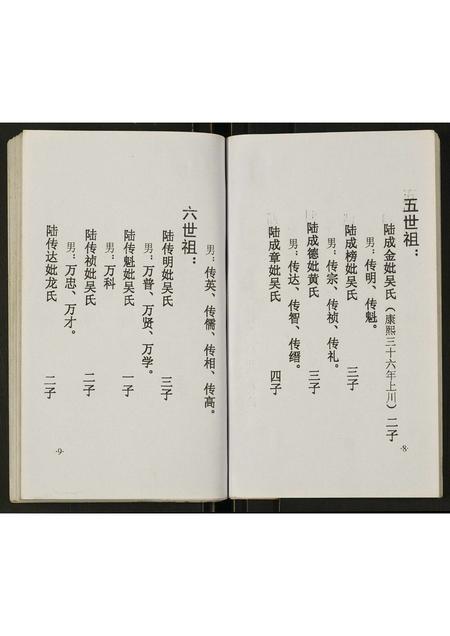 五世祖：
陆成金妣吴氏（康熙三十六年上川）二子
男：传明、传魁。
陆成榜妣吴氏　三子
男：传宗、传祯、传礼。
陆成德妣黄氏　三子
男：传达、传智、传缙。
陆成章妣吴氏　四子
·8·
男：传英、传儒、传相、传高。
六世祖：
陆传明妣吴氏　三子
男：万普、万贤、万学。
陆传魁妣吴氏　一子
男：万科
陆传祯妣吴氏　二子
男：万忠、万才。
陆传达妣龙氏　二子
·9·